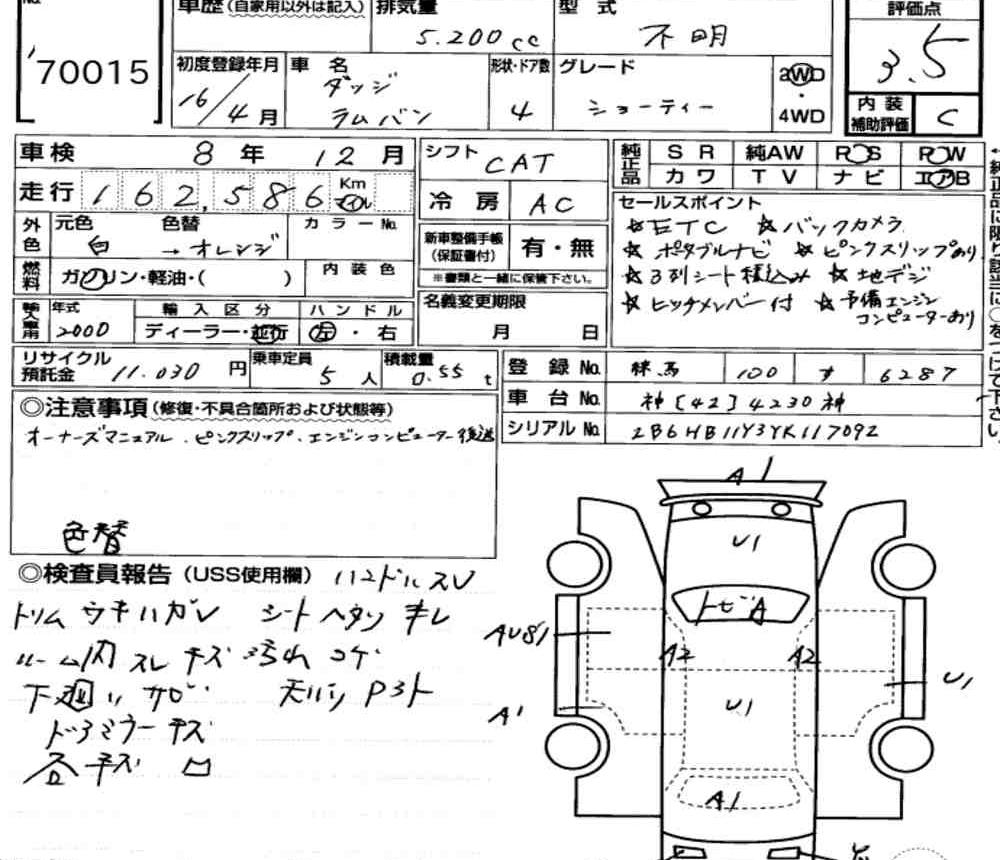 No.
車歴(自家用以外は記入) 排気量 型 式 評価点
70015 5.200cc 不明 3.5
初度登録年月 車 名 形状・ドア数 グレード 2WD
16/4月 ダッジ ラムバン 4 ショーティー ・ 4WD
内装補助評価 C
車検 8年 12月 シフト CAT 純正品 SR 純AW PS PW
走行 162,586 Km マイル 冷房 AC カワ TV ナビ エアB
外色 元色 色替 カラーNo. 新車整備手帳(保証書付) 有・無 セールスポイント
白 →オレンジ ☆ETC ☆バックカメラ
☆ポタブルナビ ☆ピンクスリップあり
燃料 ガソリン・軽油・( ) 内装色 ※書類と一緒に保管下さい。 ☆3列シート積込み ☆地デジ
輸入車用 年式 輸入区分 ハンドル 名義変更期限 ☆ヒッチメンバー付 ☆予備エンジン
2000 ディーラー・並行 左・右 月 日 コンピューターあり
リサイクル預託金 11.030円 乗車定員 5人 積載量 0.55t
登録No. 練馬 100 す 6287
◎注意事項(修復・不具合箇所および状態等) 車台No. 神[42]4230神
オーナーズマニュアル、ピンクスリップ、エンジンコンピューター後送 シリアルNo. 2B6HB11Y3YK117092
色替
◎検査員報告(USS使用欄) ハンドルスレ
トリムウキハガレ シートヘタリキレ
ルーム内スレキズ汚れコゲ
下廻りサビ 天バリ
ドアミラーキズ
キズ凹
A1
U1
トビA
A2 A2
U1
U1
A1
A1